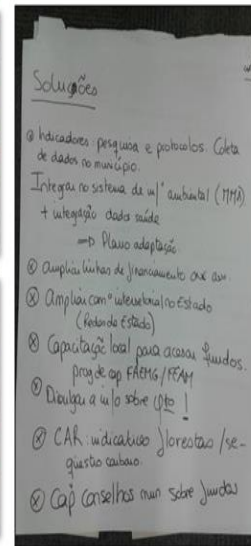 Soluções
Indicadores: pesquisa e protocolos. Coleta
de dados no município.
Integrar no sistema de ambiental (MMA)
+ integração dados saúde
⇒ Plano adaptação
⊗ ampliar linhas de financiamento
⊗ Ampliar com° intersetorial no Estado
(Rede do Estado)
⊗ Capacitação local para acessar fundos.
prog de cap FAEMG/FEAM
⊗ Divulgar a info sobre !
⊗ CAR: indicativos florestas /se-
questro carbono.
⊗ Cap conselhos mun sobre fundos